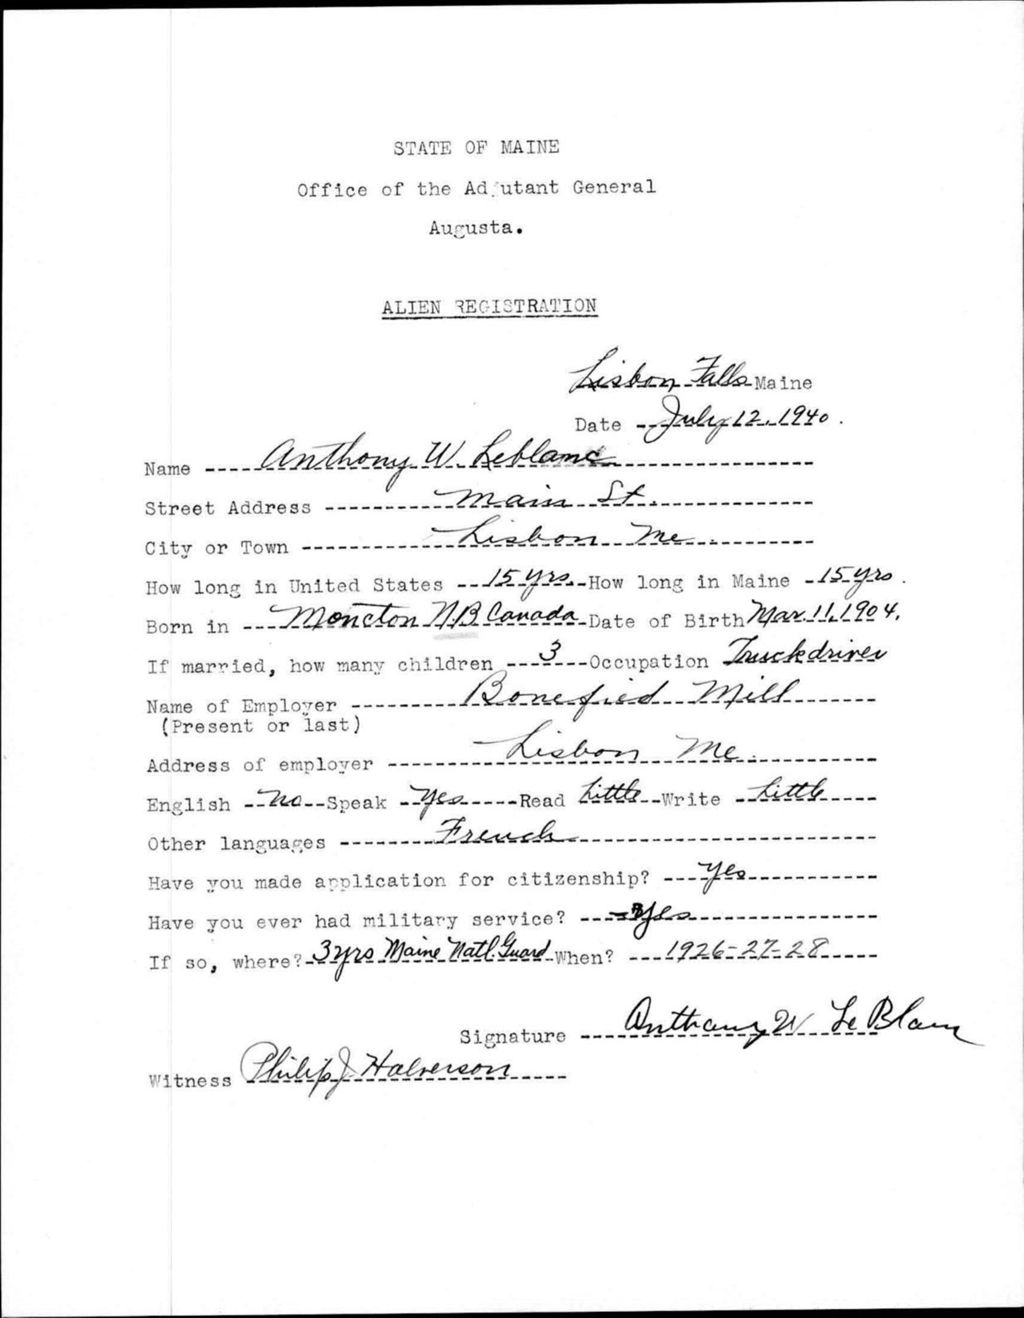 STATE OF MAINE
Office of the Adjutant General
Augusta.
ALIEN REGISTRATION
Lisbon Falls Maine
Date July 12, 1940.
Name Anthony W. Leblanc
Street Address Main St.
City or Town Lisbon Me.
How long in United States 15 yrs. How long in Maine 15 yrs.
Born in Moncton N.B Canada Date of Birth Mar. 11, 1904.
If married, how many children 3 Occupation Truckdriver
Name of Employer Bonefied Mill
(Present or last)
Address of employer Lisbon Me.
English No Speak Yes Read Little Write Little
Other languages French
Have you made application for citizenship? Yes
Have you ever had military service? Yes
If so, where? 3 yrs Maine Natl. Guard When? 1926-27-28
Signature Anthony W Le Blanc
Witness Philip J. Halverson